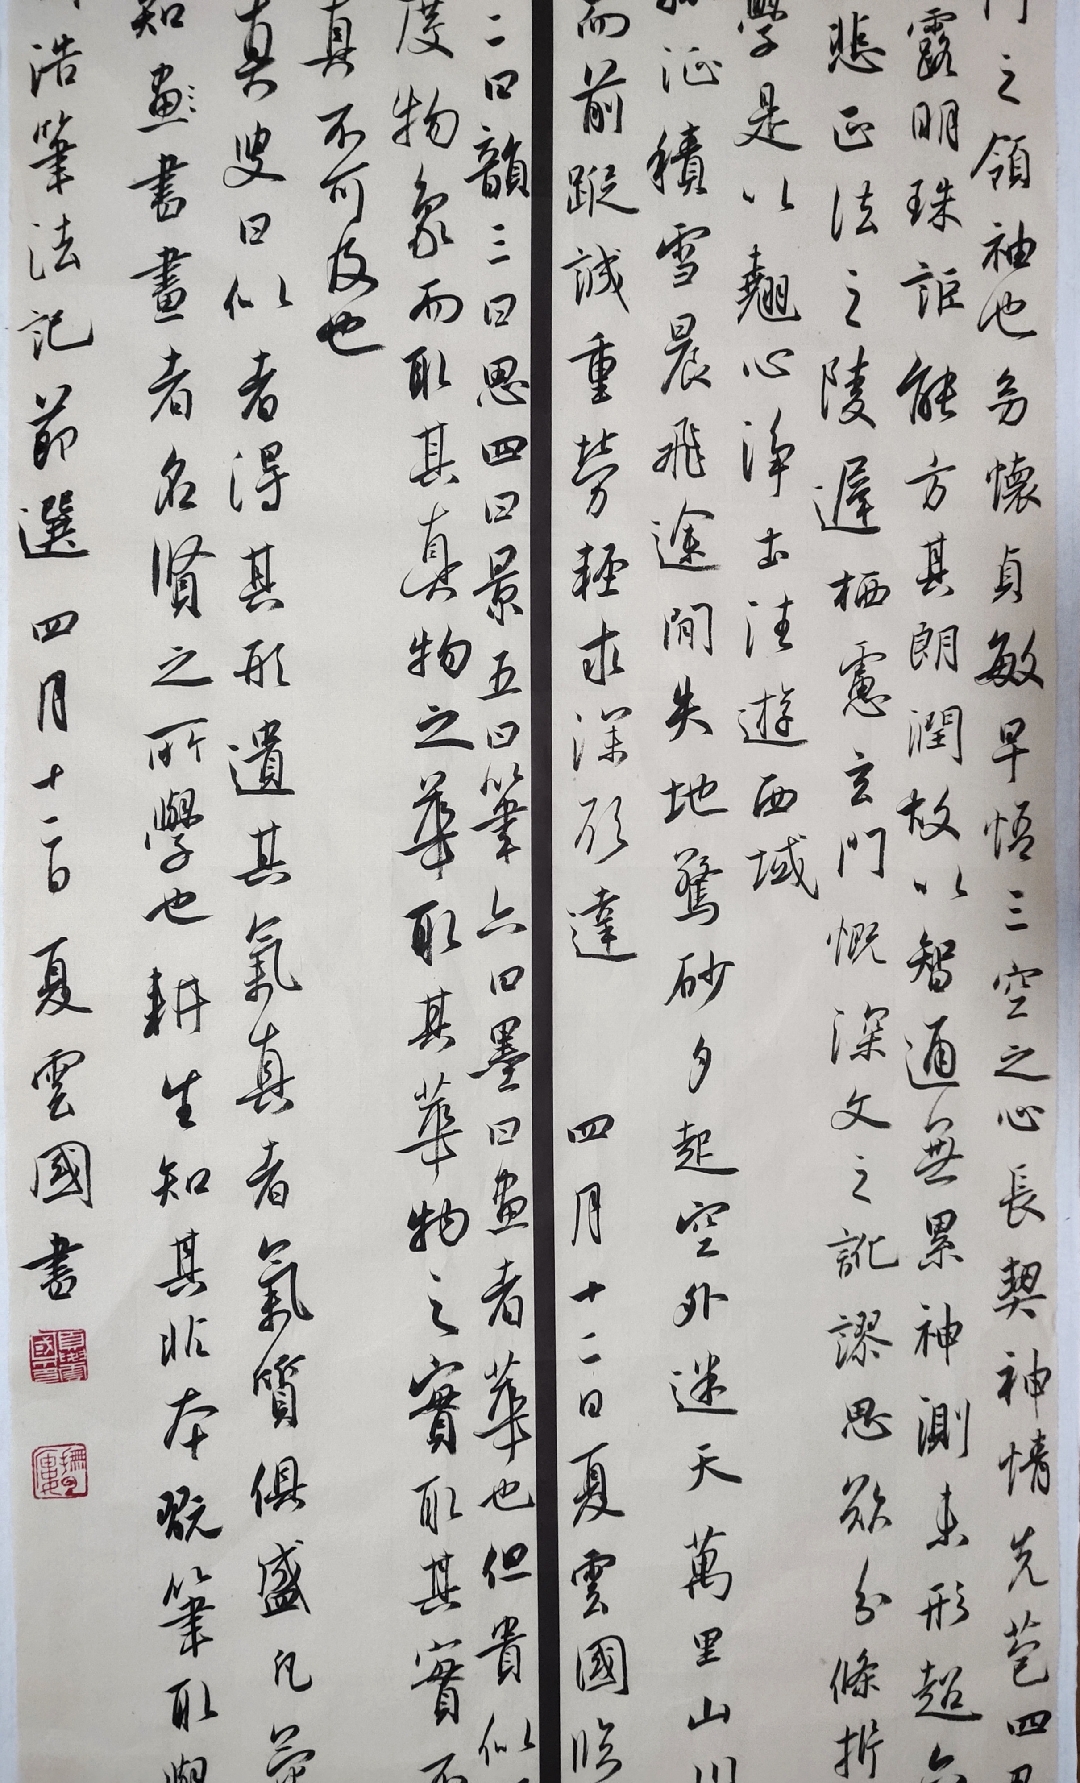 門之領袖也幼懷貞敏早悟三空之心長契神情先苞四忍
露明珠詎能方其朗潤故以智通無累神測未形超六
悲正法之陵遲栖慮玄門慨深文之訛謬思欲分條析
學是以翹心淨土法遊西域
征積雪晨飛途間失地驚砂夕起空外迷天萬里山川
而前蹤誠重勞輕求深願達 四月十二日夏雲國臨
二曰韻三曰思四曰景五曰筆六曰墨曰畫者華也但貴似
度物象而取其真物之華取其華物之實取其實不
真不可及也
真叟曰似者得其形遺其氣真者氣質俱盛凡氣
知畫書畫者名賢之所學也耕生知其非本翫筆取與
浩筆法記節選 四月十二日 夏雲國書